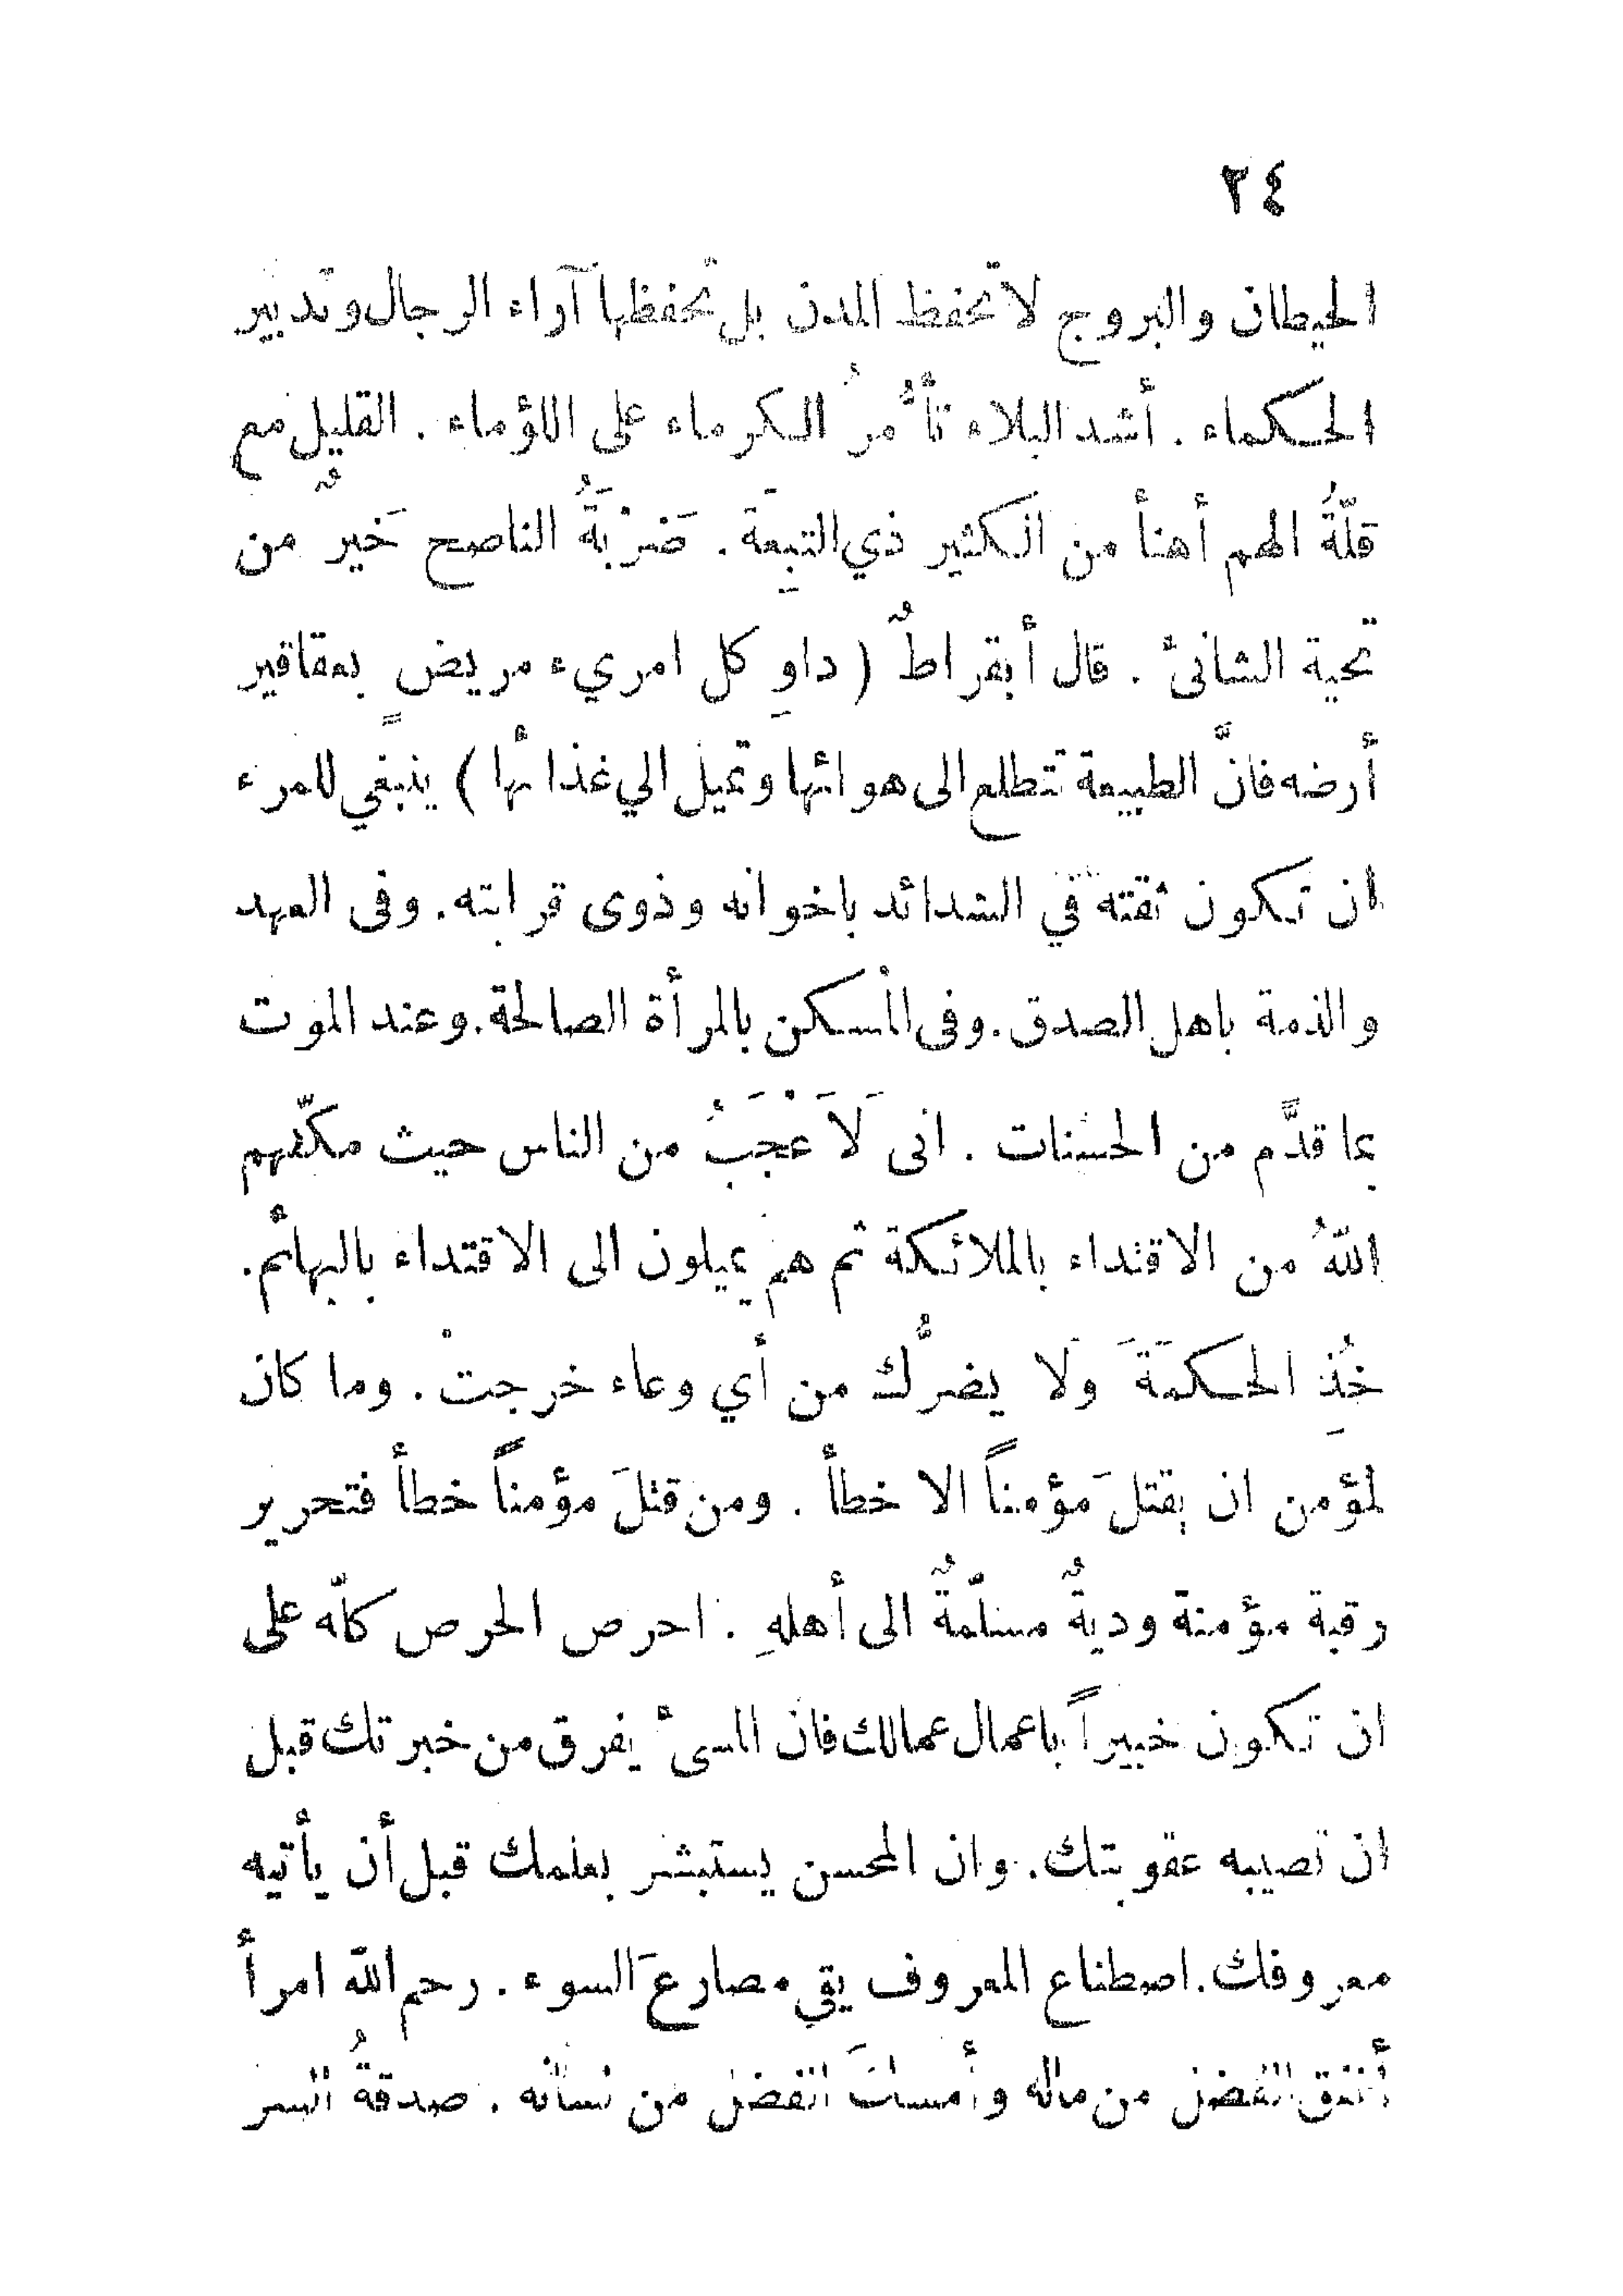 ٢٤
الحيطان والبروج لا تحفظ المدن بل تحفظها آراء الرجال وتدبير
الحكماء . أشد البلاء تأَمُّرُ الكرماء على اللؤماء . القليل مع
قلّةُ الهم أهنأ من الكثير ذي التبِعَة . ضَرْبَةُ الناصح خَيرٌ من
تحية الشانئ . قال أبقراطٌ ( داوِ كل امريء مريض بعقاقير
أرضه فانَّ الطبيعة تتطلع الى هوائها وتميل الي غذائها ) ينبغي للمرء
ان تكون ثقته في الشدائد باخوانه وذوى قرابته . وفى العهد
والذمة باهل الصدق . وفى المسكن بالمرأة الصالحة . وعند الموت
بما قدَّم من الحسنات . انى لَاَعْجَبُ من الناس حيث مكّنهم
اللهُ من الاقتداء بالملائكة ثم هم يميلون الى الاقتداء بالبهائم .
خُذِ الحكمَةَ وَلا يضرُّك من أي وعاء خرجتْ . وما كان
لمؤمن ان يقتلَ مؤمناً الا خطأ . ومن قتلَ مؤمناً خطأ فتحرير
رقبة مؤمنة وديةٌ مسلّمةٌ الى أهلهِ . احرص الحرص كلّه على
ان تكون خبيراً باعمال عمالك فان المسئ يفرق من خبرتك قبل
ان تصيبه عقوبتك . وان المحسن يستبشر بعلمك قبل أن يأتيه
معروفك . اصطناع المعروف يقي مصارعَ السوء . رحم الله امرأ
أنفق الفضل من ماله وأمسكَ الفضل من لسانه . صدقةُ السر